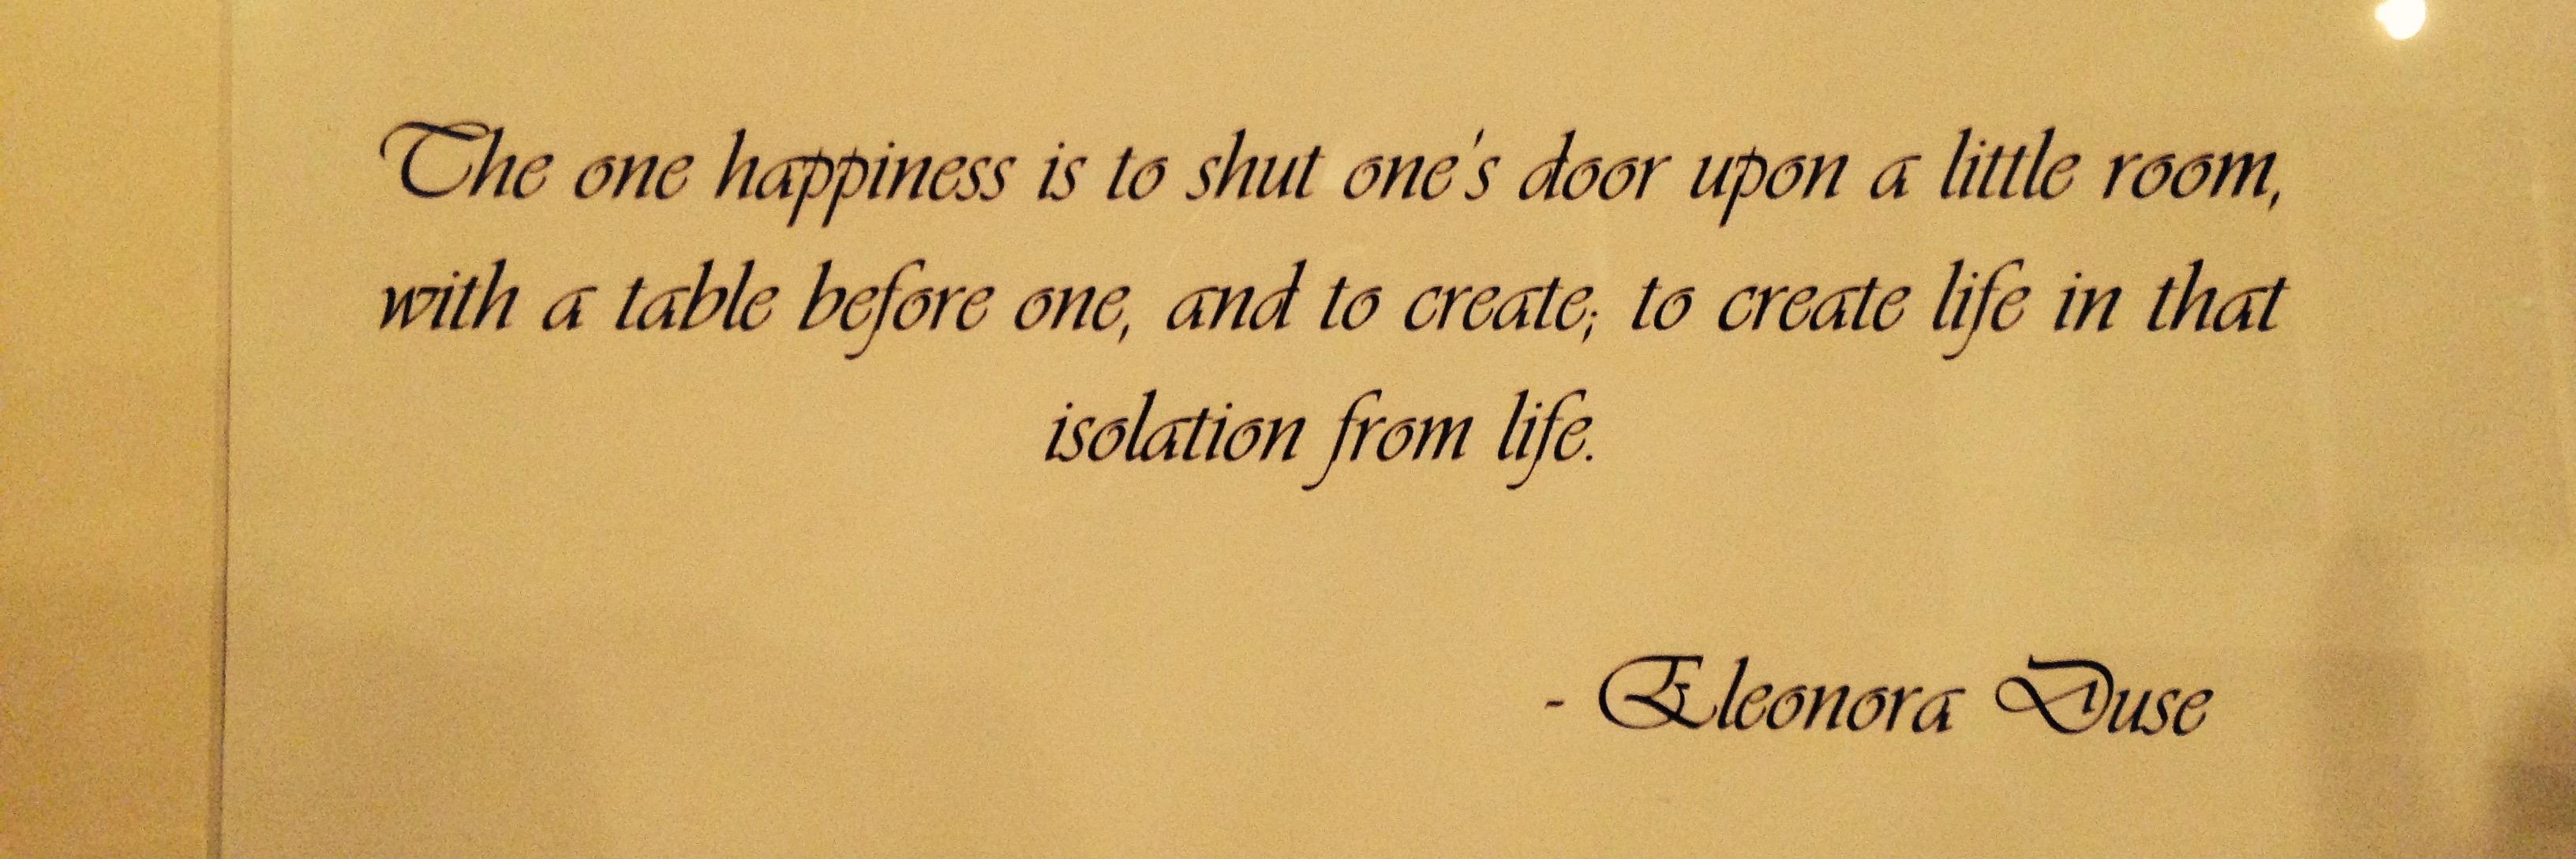 The one happiness is to shut one's door upon a little room,
with a table before one, and to create; to create life in that
isolation from life.
- Eleonora Duse